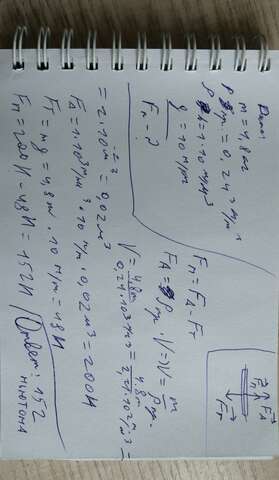 Дано:
m = 4,8 кг
ρ пр. = 0,24 г/м³
ρ в = 1·10³ кг/м³
g = 10 м/с²
Fп - ?
Fп = FА - Fт
FА = ρ пр. · V => V = m/ρ пр.
V = 4,8кг / 0,24·10³ кг/м³ = 4,8кг / 2,4·10² кг/м³ =
= 2·10⁻² м³ = 0,02 м³
FА = 1·10³ кг/м³ · 10 м/с² · 0,02 м³ = 200 Н
Fт = mg = 4,8 кг · 10 м/с² = 48 Н
Fп = 200 Н - 48 Н = 152 Н / Ответ: 152
ньютона
Fп FА
Fт